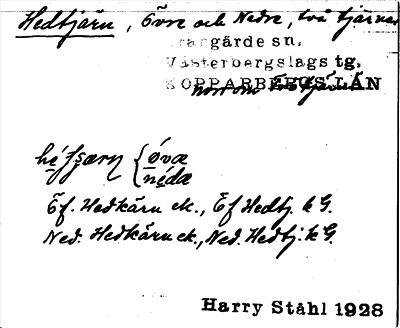 Hedtjärn, Övre och Nedre, två tjärnar
argärde sn,
Västerbergslags tg,
KOPPARBERGS LÄN
{ óvæ
nédæ
Öf. Hedkärn ek., Öf Hedtj. k G.
Ned. Hedkärn ek., Ned. Hedtj. k G.
Harry Ståhl 1928